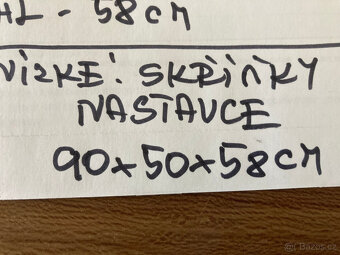 HL - 58cm
NÍZKÉ: SKŘIŇKY
NASTAVCE
90x50x58cm
Bazos.cz